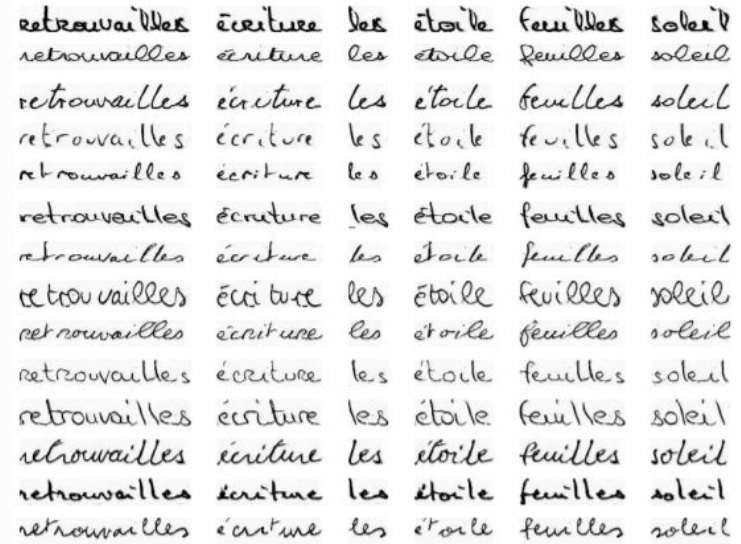 retrouvailles écriture les étoile feuilles soleil
retrouvailles écriture les étoile feuilles soleil
retrouvailles écriture les étoile feuilles soleil
retrouvailles écriture les étoile feuilles soleil
retrouvailles écriture les étoile feuilles soleil
retrouvailles écriture les étoile feuilles soleil
retrouvailles écriture les étoile feuilles soleil
retrouvailles écriture les étoile feuilles soleil
retrouvailles écriture les étoile feuilles soleil
retrouvailles écriture les étoile feuilles soleil
retrouvailles écriture les étoile feuilles soleil
retrouvailles écriture les étoile feuilles soleil
retrouvailles écriture les étoile feuilles soleil
retrouvailles écriture les étoile feuilles soleil